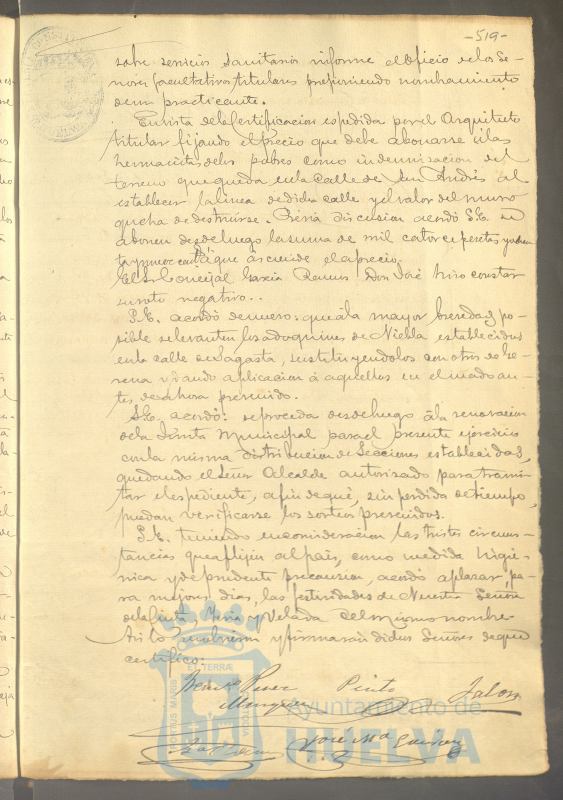 -519-
sobre servicios sanitarios informe el oficio de los Se-
ñores facultativos titulares proponiendo nombramiento
de un practicante.
En vista de la Certificacion espedida por el Arquitecto
titular fijando el precio que debe abonarse á las
hermanitas de los pobres como indemnizacion del
terreno que queda en la calle de San Andrés al
establecer la linea de dicha calle y el valor del muro
que ha de destruirse. Prévia discusion acordó S.E. se
abonen desde luego la suma de mil catorce pesetas
que asciende el aprecio.
El Sr Concejal Garcia Ramos Don José hizo constar
su voto negativo.
S.E. acordó de nuevo: que á la mayor brevedad po-
sible se levanten los adoquines de Niebla establecidos
en la calle de Sagasta, sustituyendolos con otros de Ge-
rena y dando aplicacion á aquellos en el modo an-
tes de ahora prevenido.
S.E. acordó: se proceda desde luego á la renovacion
de la Junta Municipal para el presente ejercicio
con la misma distribucion de Secciones establecidas,
quedando el Señor Alcalde autorizado para trami-
tar el espediente, afin de que, sin perdida de tiempo,
puedan verificarse los sorteos prevenidos.
S.E. teniendo en consideracion las tristes circuns-
tancias que aflijen al pais, como medida higie-
nica y de prudente precaucion, acordó aplazar, pa-
ra mejores dias, las festividades de Nuestra Señora
de la Cinta, Feria y Velada del mismo nombre
Asi lo resolvieron y firmarán dichos Señores de que
certifico.
Perez Pinto Jalon
José Mª
PORTUS MARIS ET TERRÆ CUSTODIA
Ayuntamiento de
HUELVA